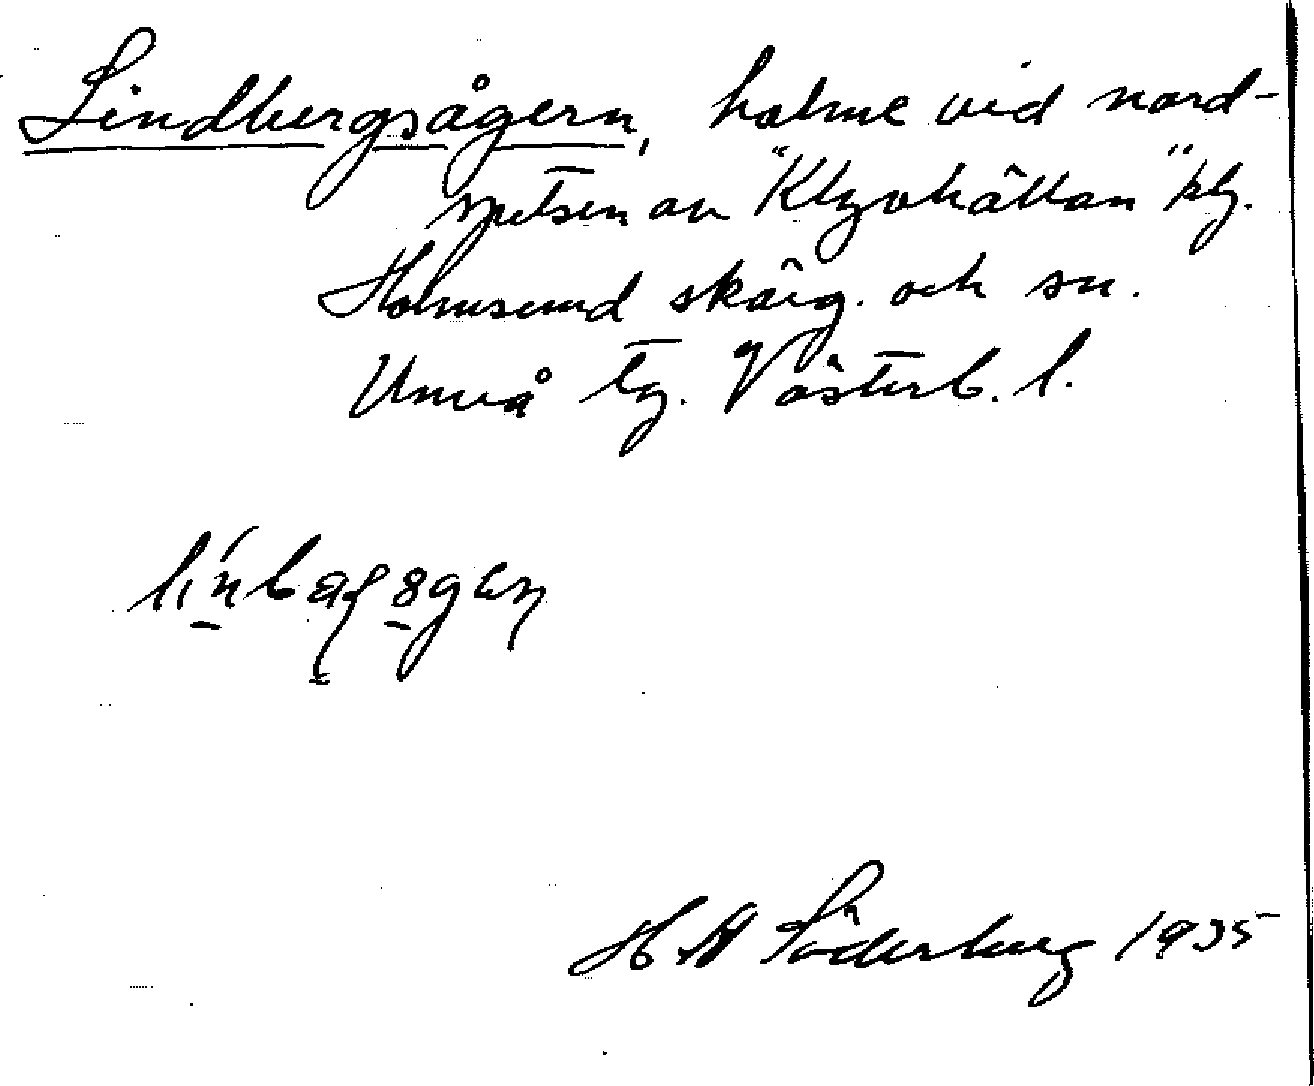 Lindbergsågern, holme vid nord-
spetsen av "Klyvhällan" klg.
Holmsund skärg. och sn.
Umeå tg. Västerb. l.
H. W Söderberg 1935